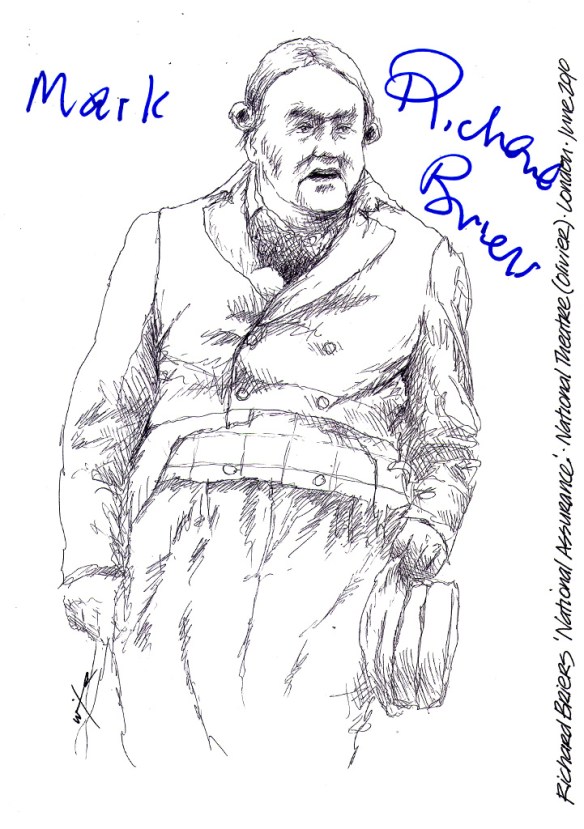 Mark
Richard
Briers
Richard Briers 'National Assurance' · National Theatre (Olivier) · London · June 2010